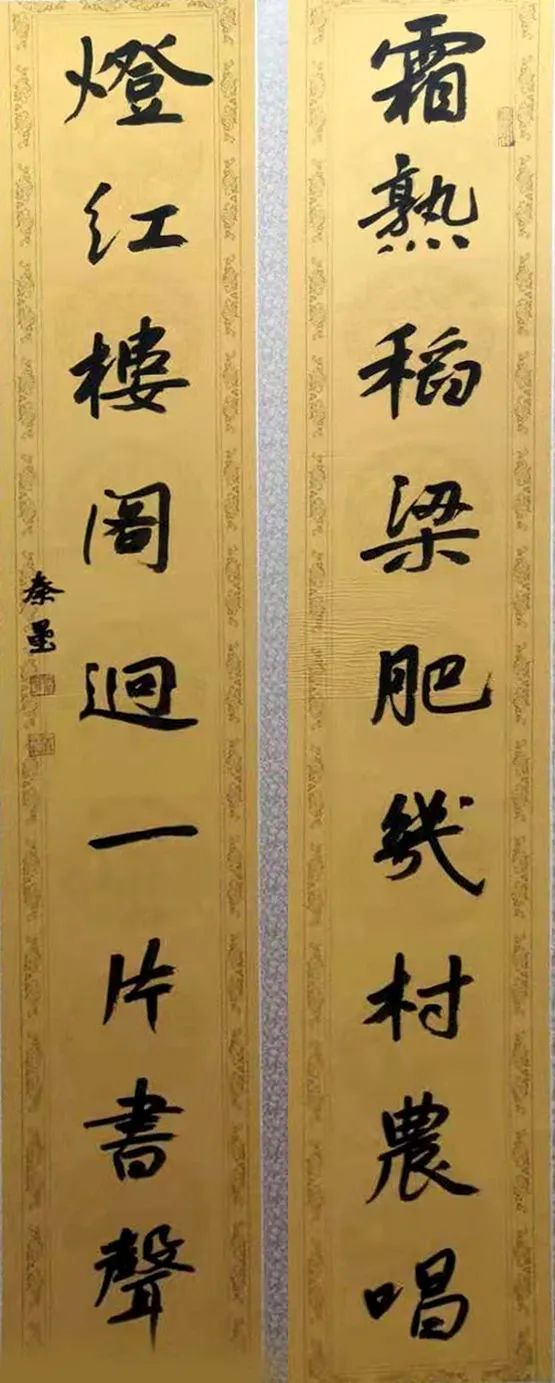 霜熟稻梁肥幾村農唱
燈紅樓閣迥一片書聲
秦